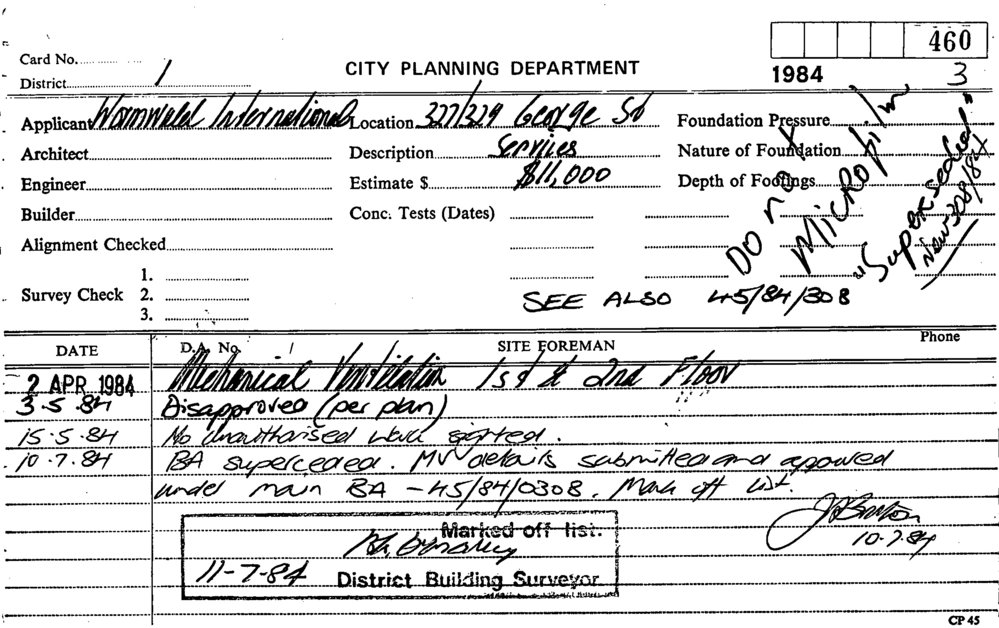 460
Card No.
District 1
CITY PLANNING DEPARTMENT
1984 3
Applicant Wormwald International Location 327/329 George St Foundation Pressure
Architect Description Services Nature of Foundation
Engineer Estimate $ $11,000 Depth of Footings
Builder Conc. Tests (Dates)
Alignment Checked
Do not
Microfilm
"Superseded"
New 308/84
1.
Survey Check 2.
3.
SEE ALSO 45/84/308
DATE D.A. No. SITE FOREMAN Phone
2 APR 1984 Mechanical Ventilation 1st & 2nd Floor
3.5.84 Disapproved (per plan)
15.5.84 No unauthorised work sighted.
10.7.84 BA superceded. MV details submitted and approved
under main BA - 45/84/0308. Mark off list.
10.7.84
Marked off list.
11-7-84 District Building Surveyor
CP 45